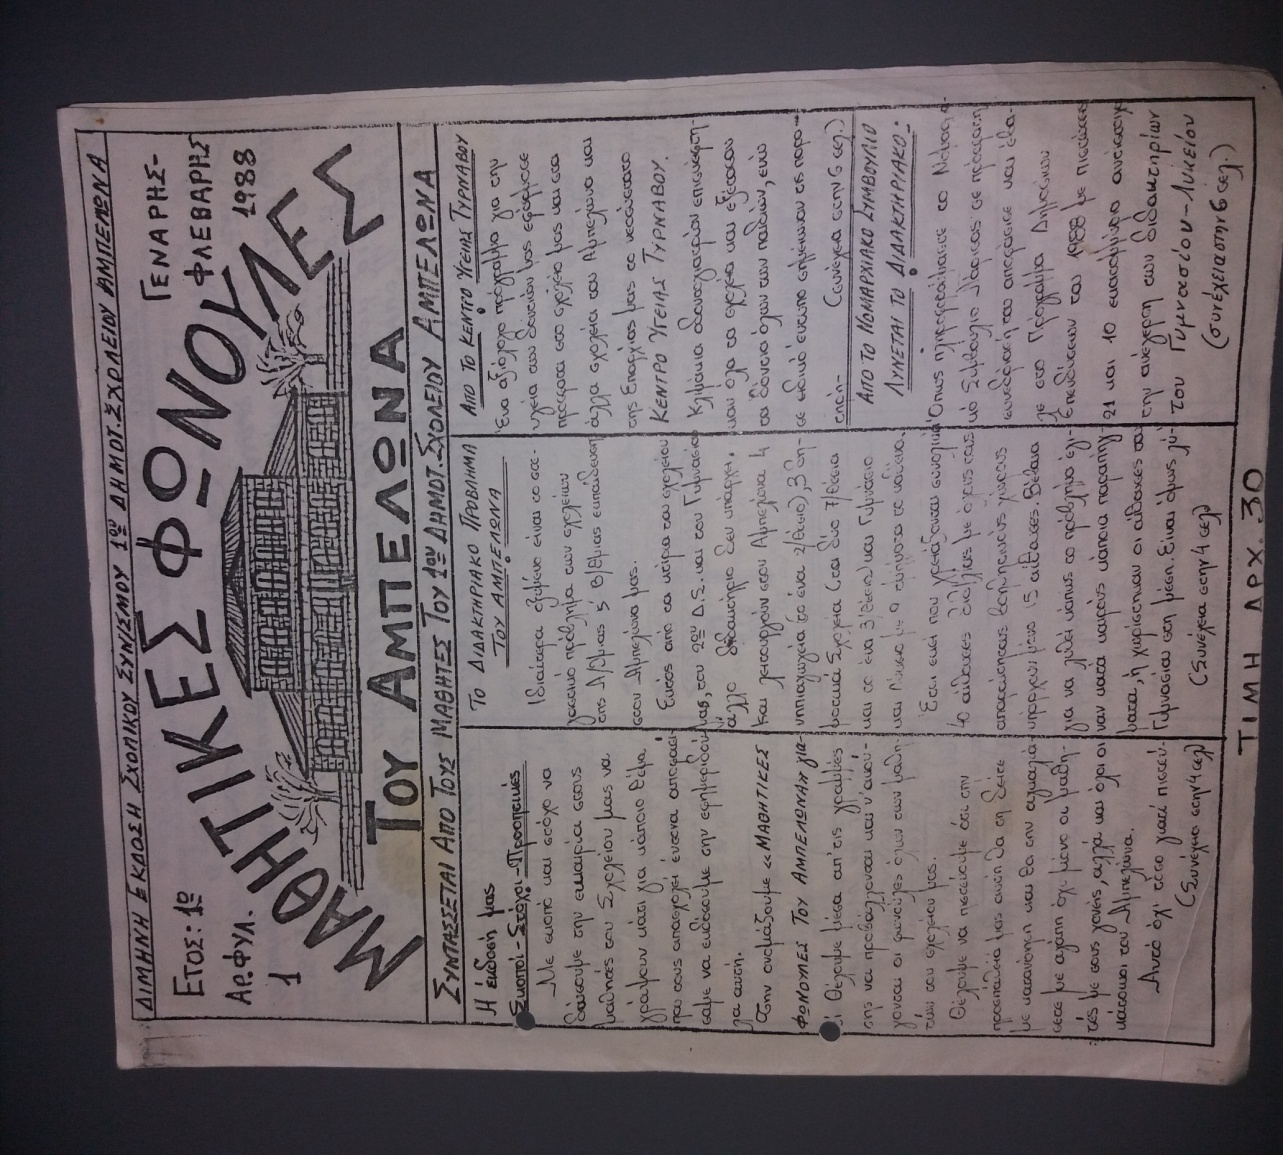 ΔΙΜΗΝΗ ΕΚΔΟΣΗ ΣΧΟΛΙΚΟΥ ΣΥΝ/ΣΜΟΥ 1ου ΔΗΜΟΤ. ΣΧΟΛΕΙΟΥ ΑΜΠΕΛΩΝΑ
ΕΤΟΣ: 1ο
ΑΡ.ΦΥΛ.
1
ΓΕΝΑΡΗΣ-
ΦΛΕΒΑΡΗΣ
1988
ΜΑΘΗΤΙΚΕΣ ΦΩΝΟΥΛΕΣ
ΤΟΥ ΑΜΠΕΛΩΝΑ
ΣΥΝΤΑΣΣΕΤΑΙ ΑΠΟ ΤΟΥΣ ΜΑΘΗΤΕΣ ΤΟΥ 1ου ΔΗΜΟΤ. ΣΧΟΛΕΙΟΥ ΑΜΠΕΛΩΝΑ
Η έκδοσή μας
Σκοποί-Στόχοι-Προοπτικές
Με σκοπό και στόχο να
δώσουμε την ευκαιρία στους
μαθητές του Σχολείου μας να
γράψουν κάτι για κάποιο θέμα
που τους απασχολεί έντονα αποφασί-
σαμε να εκδόσουμε την εφημεριδού-
λα αυτή.
Την ονομάζουμε «ΜΑΘΗΤΙΚΕΣ
ΦΩΝΟΥΛΕΣ ΤΟΥ ΑΜΠΕΛΩΝΑ» για-
τί θέλουμε μέσα απ'τις γραμμές
της να προβάλλονται και ν'ακού-
γονται οι φωνούλες όλων των μαθη-
τών του σχολείου μας.
Θέλουμε να πιστεύουμε ότι την
προσπάθειά μας αυτή θα τη δείτε
με κατανόηση και θα την αγκαλιά-
σετε με αγάπη όχι μόνο οι μαθη-
τές με τους γονείς, αλλά και όλοι οι
κάτοικοι του Αμπελώνα.
Αυτό όχι τόσο γιατί πιστεύ-
(Συνέχεια στην 4 σελ)
ΤΟ ΔΙΔΑΚΤΗΡΙΑΚΟ ΠΡΟΒΛΗΜΑ
ΤΟΥ ΑΜΠΕΛΩΝΑ
Ιδιαίτερα οξυμένο είναι το στε-
γαστικό πρόβλημα των σχολείων
της Α/θμιας & Β/θμιας εκπαίδευσης
στον Αμπελώνα μας.
Εκτός από τα κτίρια του σχολείου
μας, του 2ου Δ.Σ. και του Γυμνασίου
άλλο διδακτήριο δεν υπάρχει.
Και λειτουργούν στον Αμπελώνα 4
νηπιαγωγεία (το ένα 2/θέσιο), 3 δη-
μοτικά Σχολεία (τα δύο 7/θέσια
και το ένα 3/θέσιο) και Γυμνάσιο
και Λύκειο με 9 τμήματα το καθένα.
Έτσι ενώ που χρειάζονται συνολικά
40 αίθουσες διδ/λίας με όλους τους
απαραίτητους βοηθητικούς χώρους
υπάρχουν μόνο 15 αίθουσες. Βέβαια
για να λυθεί κάπως το πρόβλημα έγι-
ναν κατά καιρούς κάποια παραπήγ-
ματα, ή χωρίστηκαν οι αίθουσες του
Γυμνασίου στη μέση. Είναι όμως λύ-
(Συνέχεια στην 4 σελ
ΑΠΟ ΤΟ ΚΕΝΤΡΟ ΥΓΕΙΑΣ ΤΥΡΝΑΒΟΥ
Ένα αξιόλογο πρόγραμμα για την
υγεία των δοντιών μας εφάρμοσε
πέρυσι στο σχολείο μας και στα
άλλα σχολεία του Αμπελώνα και
της Επαρχίας μας το νεοσύστατο
ΚΕΝΤΡΟ ΥΓΕΙΑΣ ΤΥΡΝΑΒΟΥ.
Κλιμάκια οδοντογιατρών επισκέφτη-
καν όλα τα σχολεία και εξέτασαν
τα δόντια όλων των παιδιών, ενώ
σε ειδικό έντυπο σημείωναν τις παρα-
τηρή-
(Συνέχεια στην 6 σελ.)
ΑΠΟ ΤΟ ΝΟΜΑΡΧΙΑΚΟ ΣΥΜΒΟΥΛΙΟ
ΛΥΝΕΤΑΙ ΤΟ ΔΙΔΑΚΤΗΡΙΑΚΟ;
Όπως πληροφορηθήκαμε το Νομαρχια-
κό Συμβούλιο Λάρισας σε πρόσφατη
συνεδρίασή του αποφάσισε και έβα-
λε στο Πρόγραμμα Δημοσίων
Επενδύσεων του 1988 με πιστώσεις
21 και 10 εκατομμύρια αντίστοιχα
την ανέγερση των διδακτηρίων
του Γυμνασίου-Λυκείου
(συνέχεια στην 6 σελ.)
ΤΙΜΗ ΔΡΧ. 30